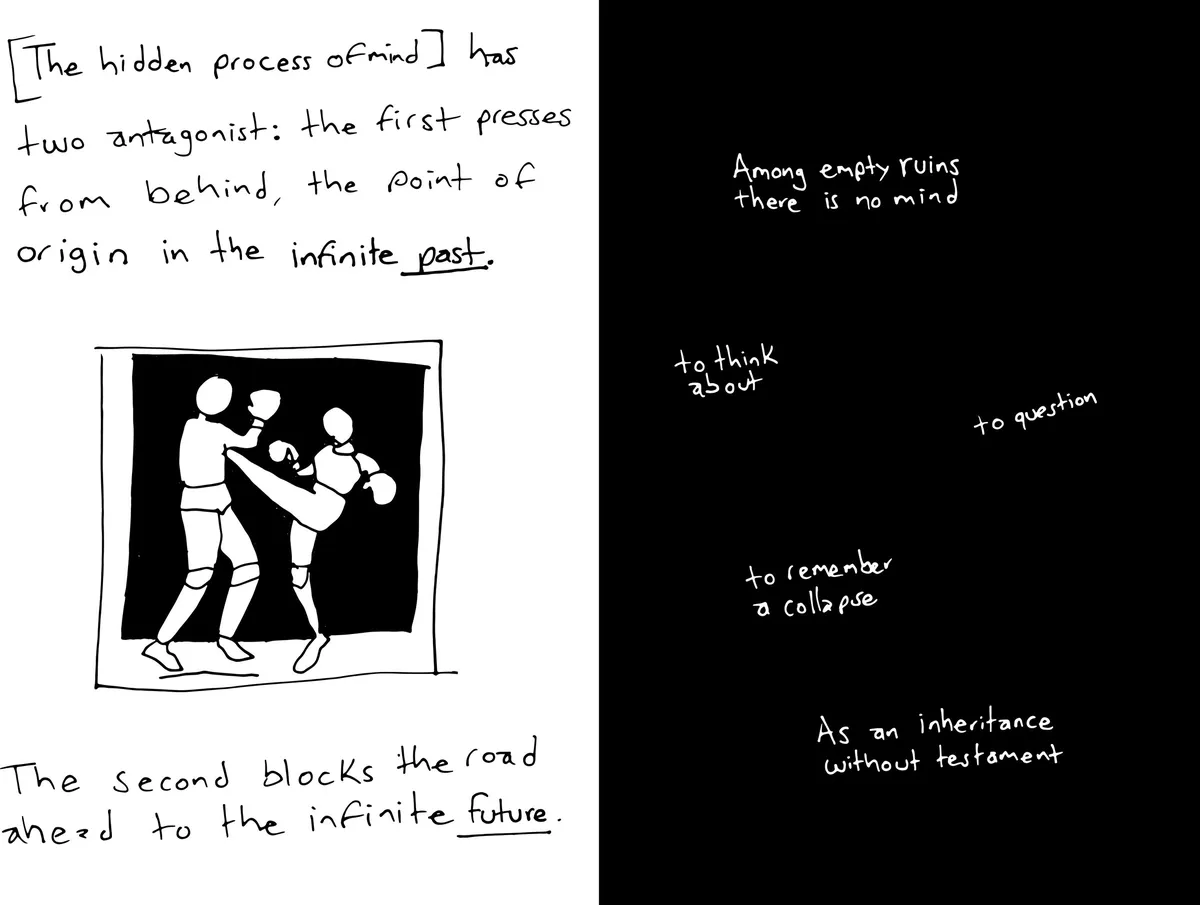 [The hidden process of mind] has
two antagonist: the first presses
from behind, the point of
origin in the infinite past.
The second blocks the road
ahead to the infinite future.
Among empty ruins
there is no mind
to think
about
to question
to remember
a collapse
As an inheritance
without testament